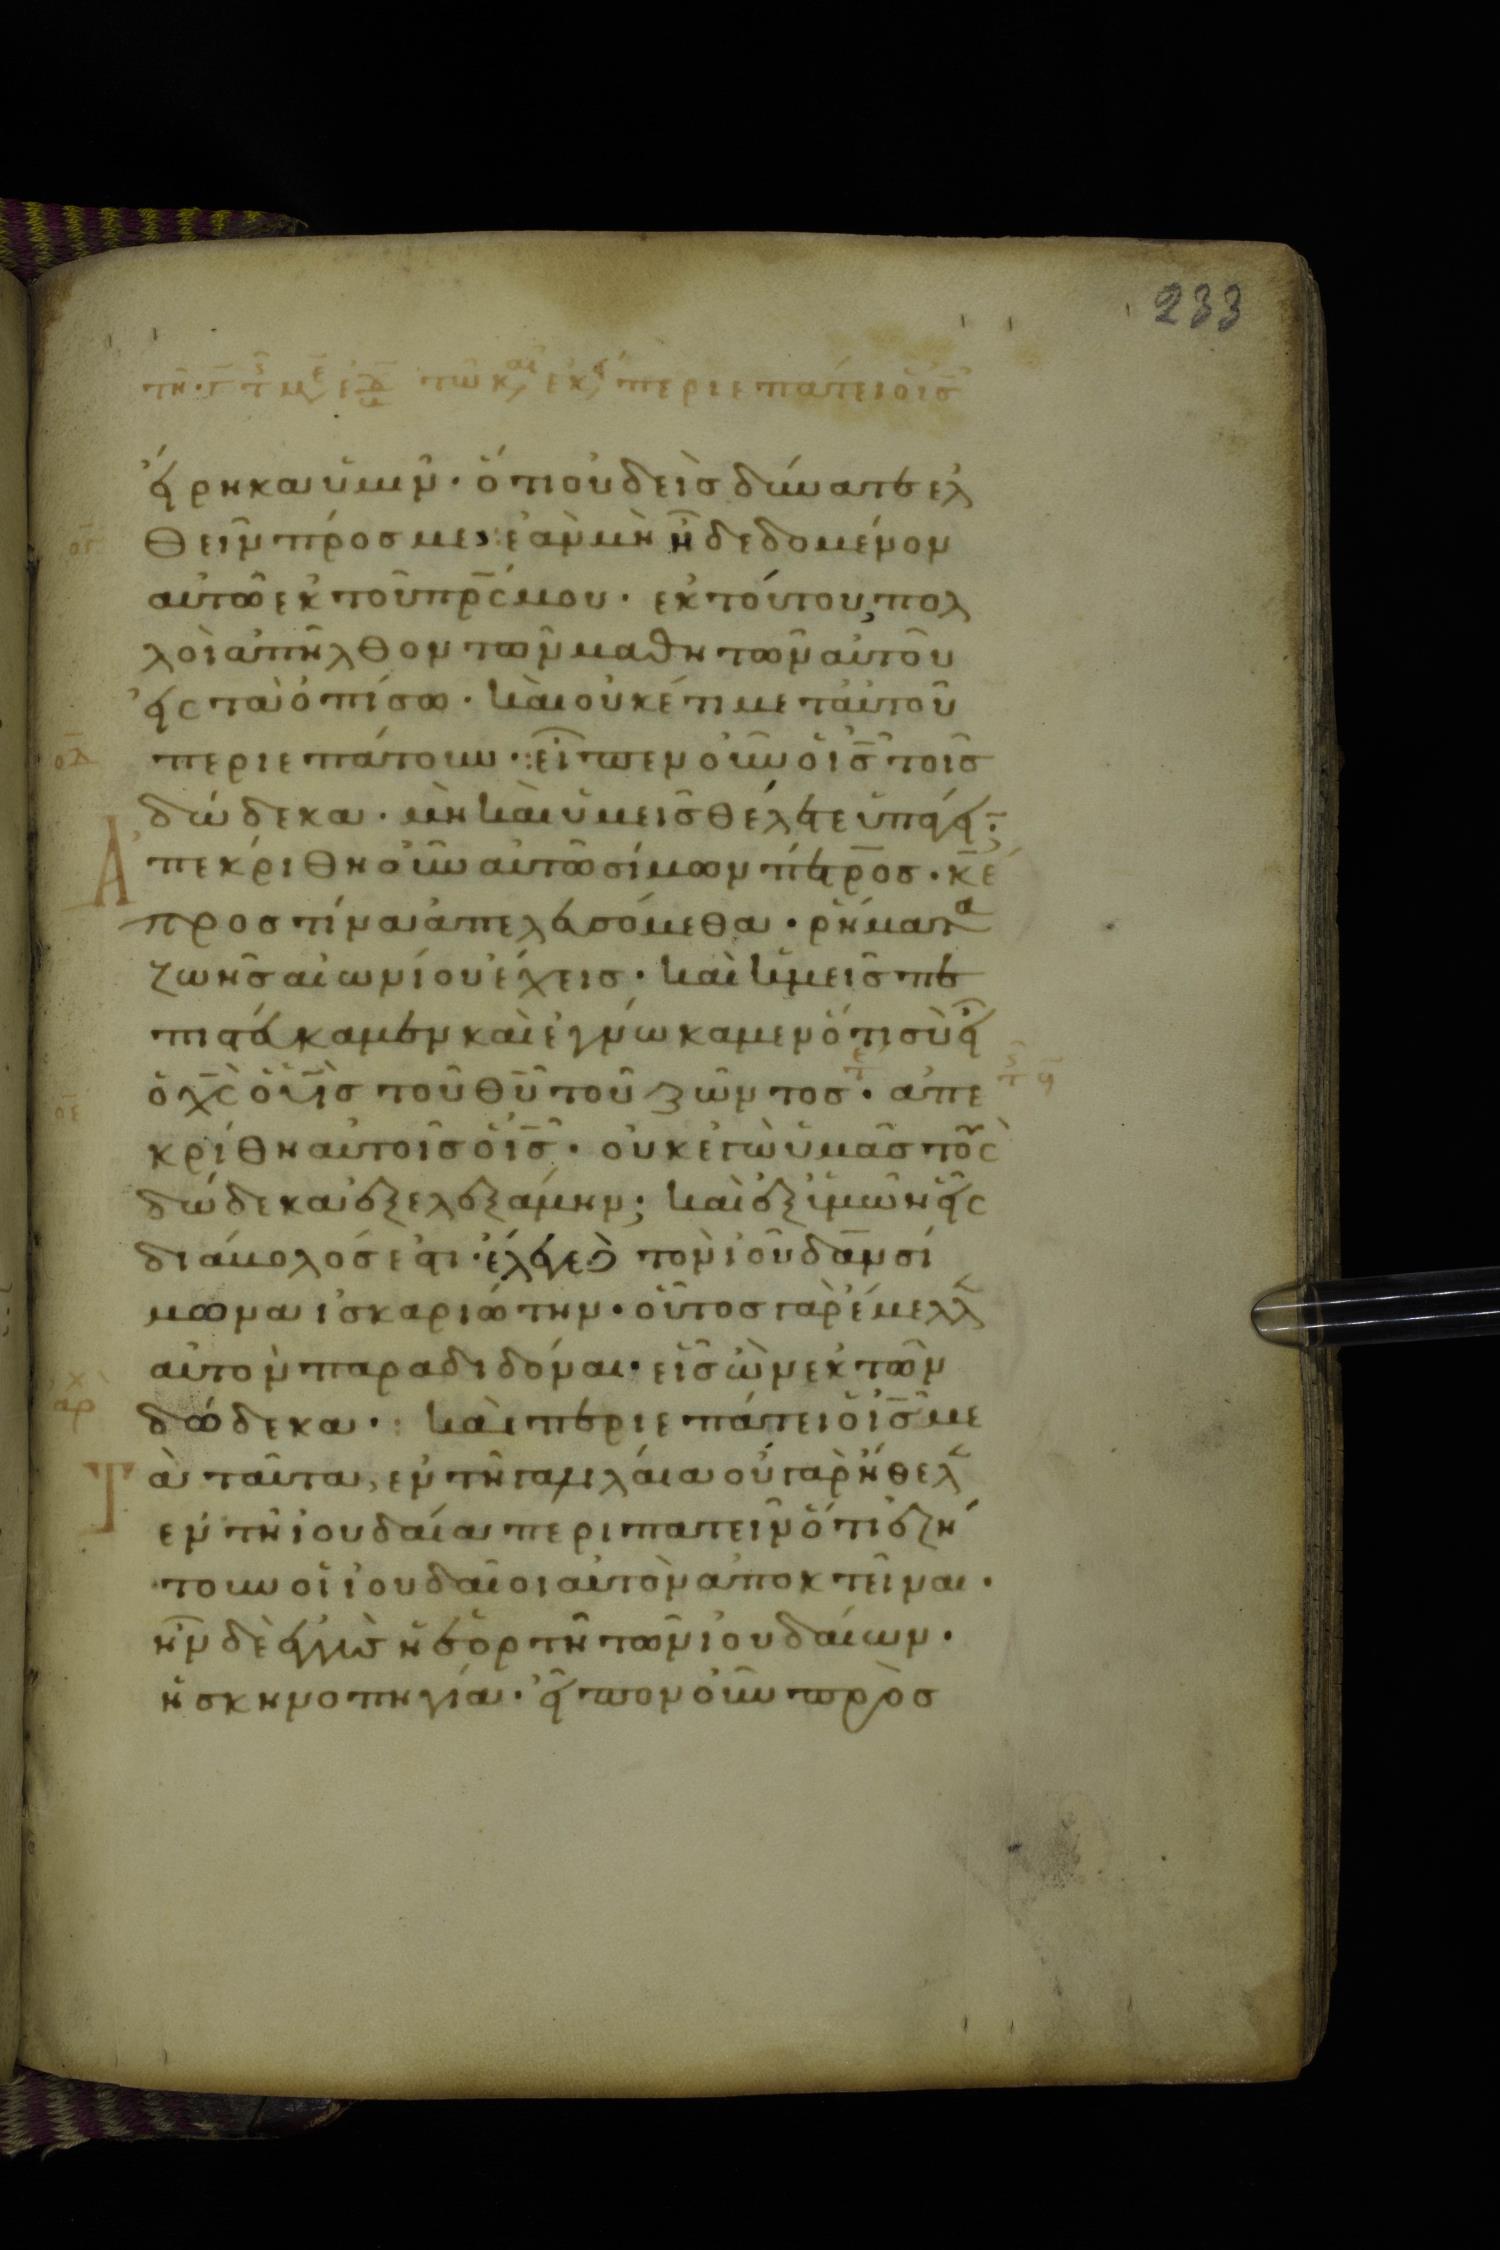 233
περιεπάτει ὁ ἰ̅ς̅
εἴρηκα ὑμῖν · ὅτι οὐδεὶς δύναται ἐλ
ο̅γ̅
θεῖν πρός με, ἐὰν μὴ ἦ δεδομένον
αὐτῶ ἐκ τοῦ π̅ρ̅ς̅ μου · ἐκ τούτου, πολ
λοὶ ἀπῆλθον τῶν μαθητῶν αὐτοῦ
εἰς τὰ ὀπίσω · καὶ οὐκέτι μετ αὐτοῦ
ο̅δ̅
περιεπάτουν · εἶπεν οὖν ὁ ἰ̅ς̅ τοῖς
δώδεκα · μὴ καὶ ὑμεῖς θέλετε ὑπάγειν;
Ἀπεκρίθη οὖν αὐτῶ σίμων πέτρος · κ̅ε̅
προς τίνα ἀπελευσόμεθα · ῥήματα
ζωῆς αἰωνίου ἔχεις · καὶ ἡμεῖς πε
πιστεύκαμεν καὶ ἐγνώκαμεν ὅτι σὺ εἶ
ὁ χ̅ς̅ ὁ υ̅ἱ̅ς̅ τοῦ θ̅υ̅ τοῦ ζῶντος · ἀπε
ο̅ε̅
κρίθη αὐτοῖς ὁ ἰ̅ς̅ · οὐκ ἐγὼ ὑμᾶς τοὺς
δώδεκα ἐξελεξάμην; καὶ ἐξ ὑμῶν εἷς
διάβολός ἐστι · ἔλεγε δὲ τὸν ἰούδαν σί
μωνα ἰσκαριώτην · οὗτος γὰρ ἔμελλεν
αὐτὸν παραδιδόναι · εἷς ὢν ἐκ τῶν
ἀρχ
δώδεκα · : καὶ περιεπάτει ὁ ἰ̅ς̅ με
Τὰ ταῦτα, ἐν τῆ γαλιλαία οὐ γὰρ ἤθελεν
ἐν τῆ ἰουδαία περιπατεῖν ὅτι ἐζή
τουν οἱ ἰουδαῖοι αὐτὸν ἀποκτεῖναι ·
ἦν δὲ ἐγγὺς ἡ ἑορτὴ τῶν ἰουδαίων ·
ἡ σκηνοπηγία · εἶπον οὖν πρὸς